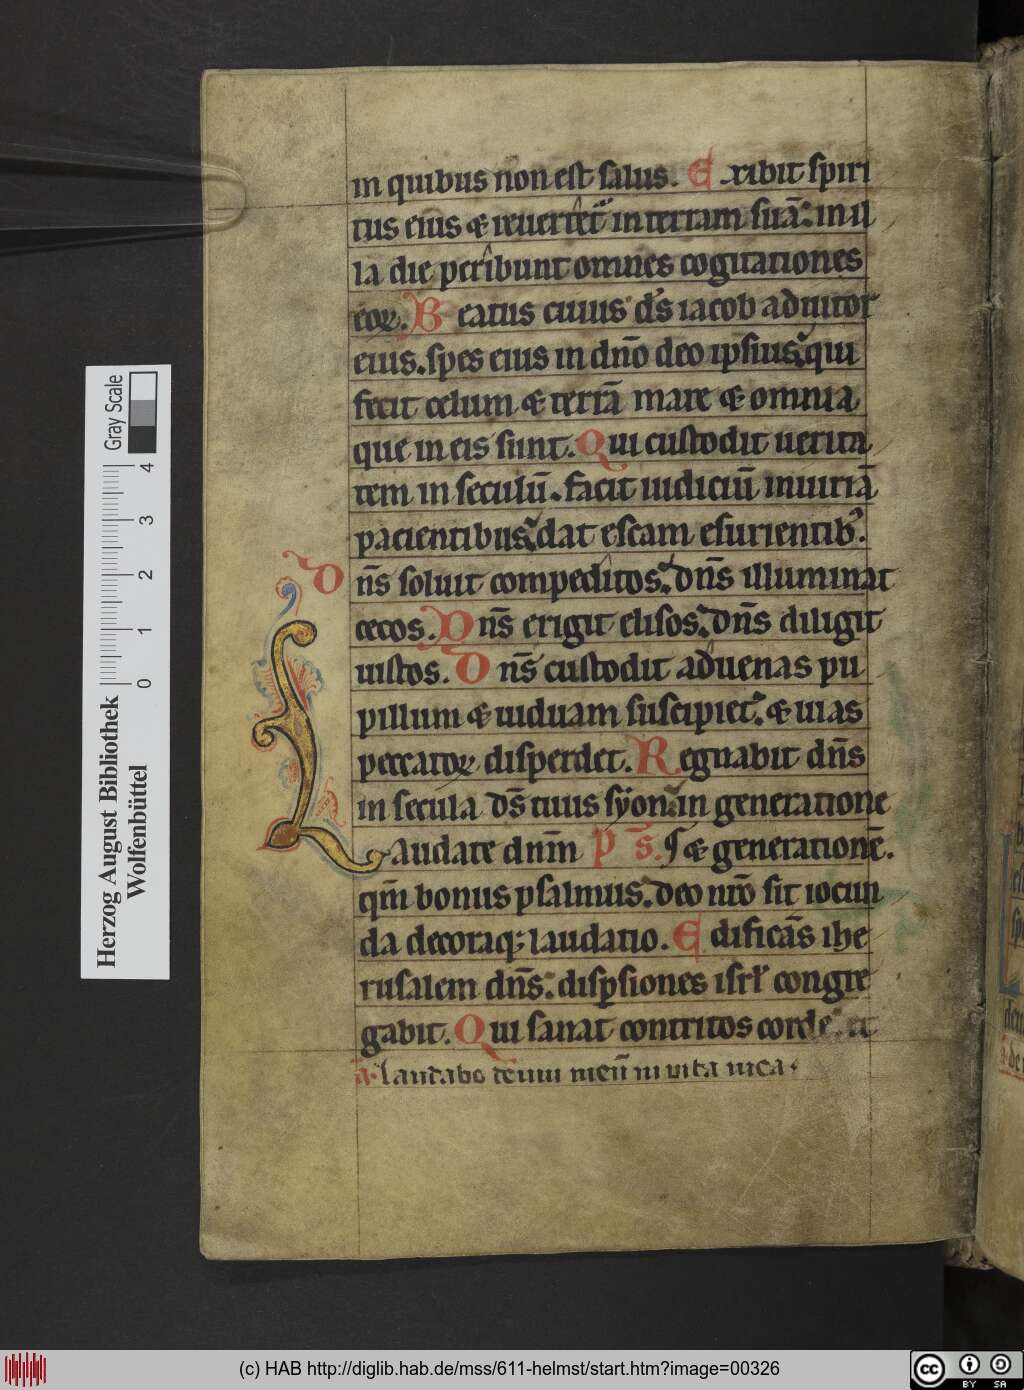 in quibus non est salus. Exibit spiri
tus eius & reuertet͛ in terram suā. in il
la die peribunt omnes cogitationes
eoꝝ. Beatus cuius ds̄ iacob adiutor
eius. spes eius in dn̄o deo ipsius. qui
fecit celum & terrā mare & omnia
que in eis sunt. Qui custodit uerita
tem in seculū. facit iudiciū iniuriā
pacientibus. dat escam esurientib᷒.
Dn̄s soluit compeditos. dn̄s illuminat
cecos. Dn̄s erigit elisos. dn̄s diligit
iustos. Dn̄s custodit aduenas pu
pillum & uiduam suscipiet. & uias
peccatoꝝ disperdet. Regnabit dn̄s
in secula ds̄ tuus syon. in generatione
Laudate dnm̄ ps̄. & generationē.
qm̄ bonus psalmus. deo nr̄o sit iocun
da decoraq; laudatio. Edificās ihe
rusalem dn̄s. disp̲siones isrl̄ congre
gabit. Qui sanat contritos corde et
a. laudabo deum meū in uita mea.
Herzog August Bibliothek
Wolfenbüttel
0 1 2 3 4
Gray Scale
(c) HAB http://diglib.hab.de/mss/611-helmst/start.htm?image=00326
cc BY SA